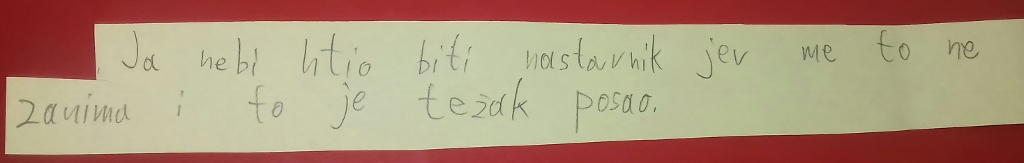 Ja nebi htio biti nastavnik jer me to ne
zanima i to je težak posao.